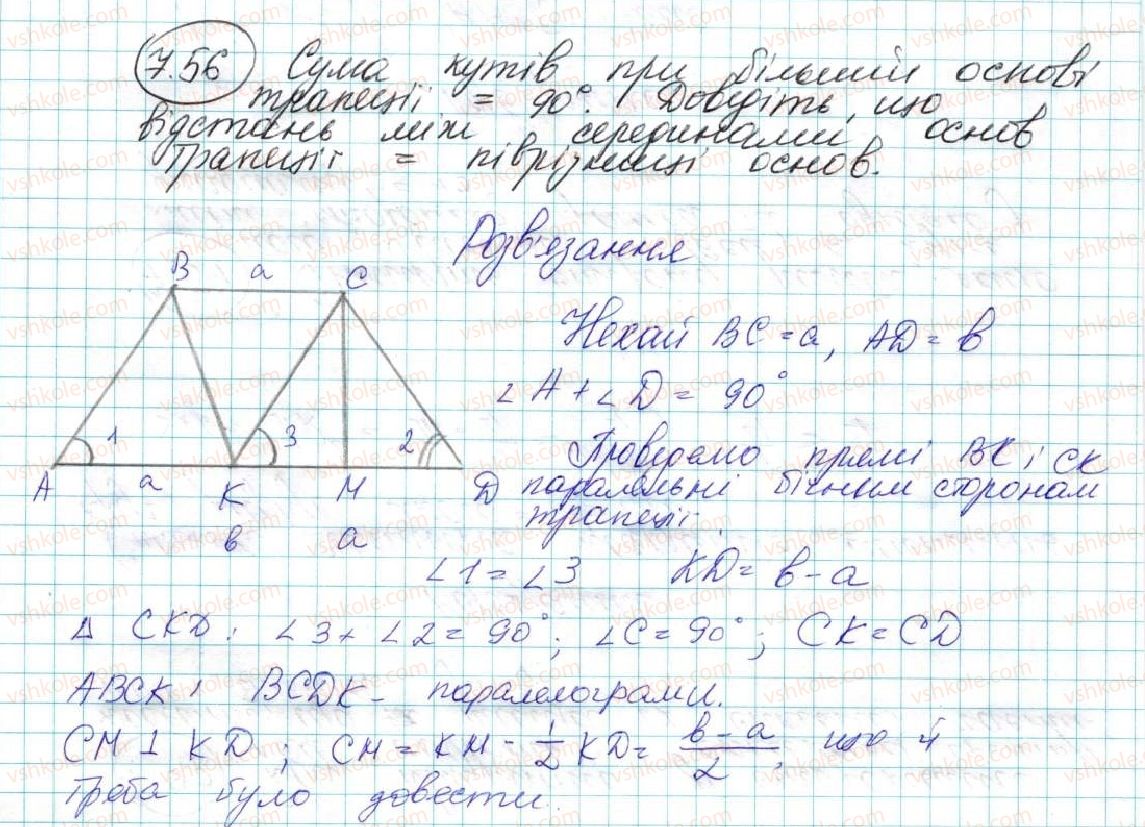 7.56 Сума кутів при більшій основі
трапеції = 90°. Доведіть, що
відстань між серединами основ
трапеції = піврізниці основ.
Розв'язання
B a C
Нехай BC = a, AD = в
∠A + ∠D = 90°
1 3 2
Проведемо прямі BK і CK
A a K M D
паралельні бічним сторонам
трапеції
в a
∠1 = ∠3 KD = в - a
Δ CKD: ∠3 + ∠2 = 90°; ∠C = 90°; CK = CD
ABCK і BCDK - паралелограми.
CM ⊥ KD; CM = KM = 1/2 KD = в - a / 2, що й
треба було довести.